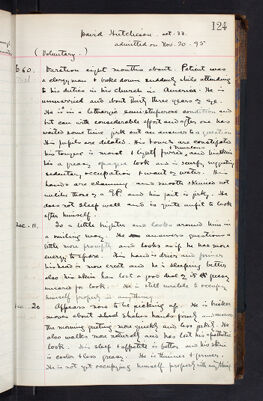 124
David Hutcheson. aet. 33.
admitted on Nov. 20. 95
(Voluntary.)
Duration eight months about. Patient was
a clergyman & broke down suddenly while attending
to his duties in his church in America. He is
unmarried and about thirty three years of age.
He is in a lethargic semi-stuporose condition and
but can with considerable effort and after one has
waited some time jerk out an answer to a question
His pupils are dilated. His bowels are constipated
his tongue is moist & slightly furred, and
his a greasy opaque look and is scurfy, suggesting
sedentary occupation & want of water. His
hands are clammy and
unlike those of a and his gait is jerky. He
does not sleep well and is quite unfit to look
after himself.
Dec. 11. Is a little brighter and looks around him in
a smiling way. He answers questions a
little more promptly and looks as if he has more
energy to spare. His hand is drier and firmer
his head is now erect and he is sleeping better
also his skin has lost a good deal of its greasy
uncared for look. He is still unable to occupy
himself properly in anything.
Dec. 20 Appears now to be picking up. He is brisker
moves about and shakes hands firmly
the morning greeting more quickly and less jerkily. He
also walks more naturally and has lost his apathetic
look. His sleep & appetite is better and his skin
is cooler & less greasy. He is thinner & firmer.
He is not yet occupying himself properly with anything